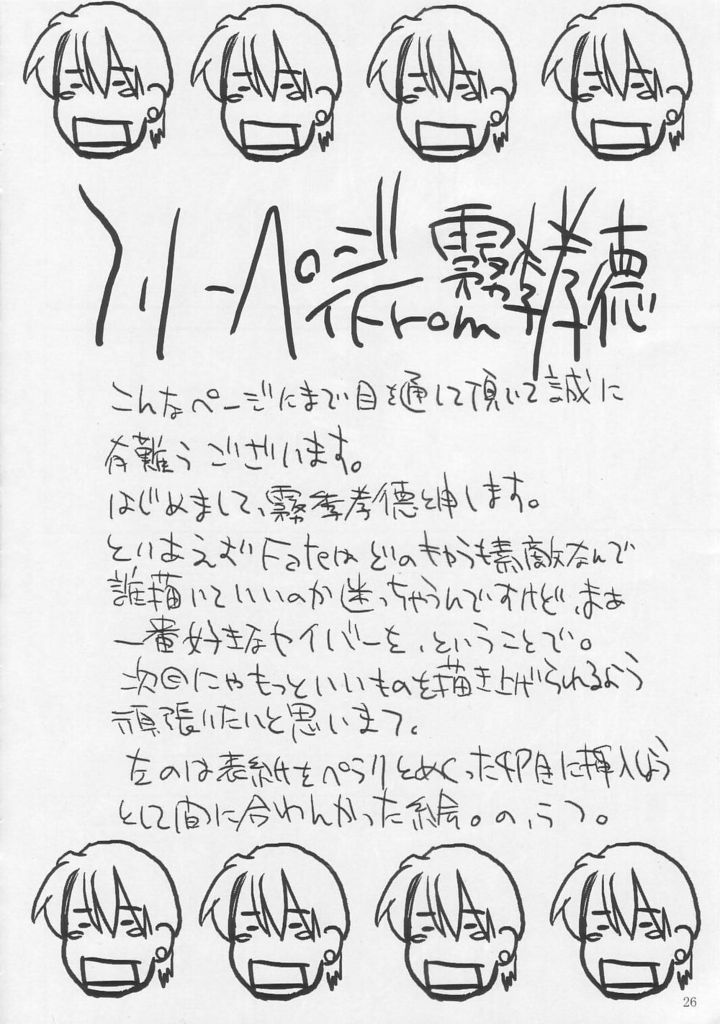 フリーページ From 霧季孝徳
こんなページにまで目を通して頂いて誠に
有難うございます。
はじめまして、霧季孝徳と申します。
とりあえずFateはどのキャラも素敵なんで
誰描いていいのか迷っちゃうんですけど、まぁ
一番好きなセイバーを、ということで。
次回にゃもっといいものを描き上げられるよう
頑張りたいと思いまフ。
左のは表紙をペラリとめくった4P目に挿入しよう
として間に合わんかった絵。の、うつ。
26